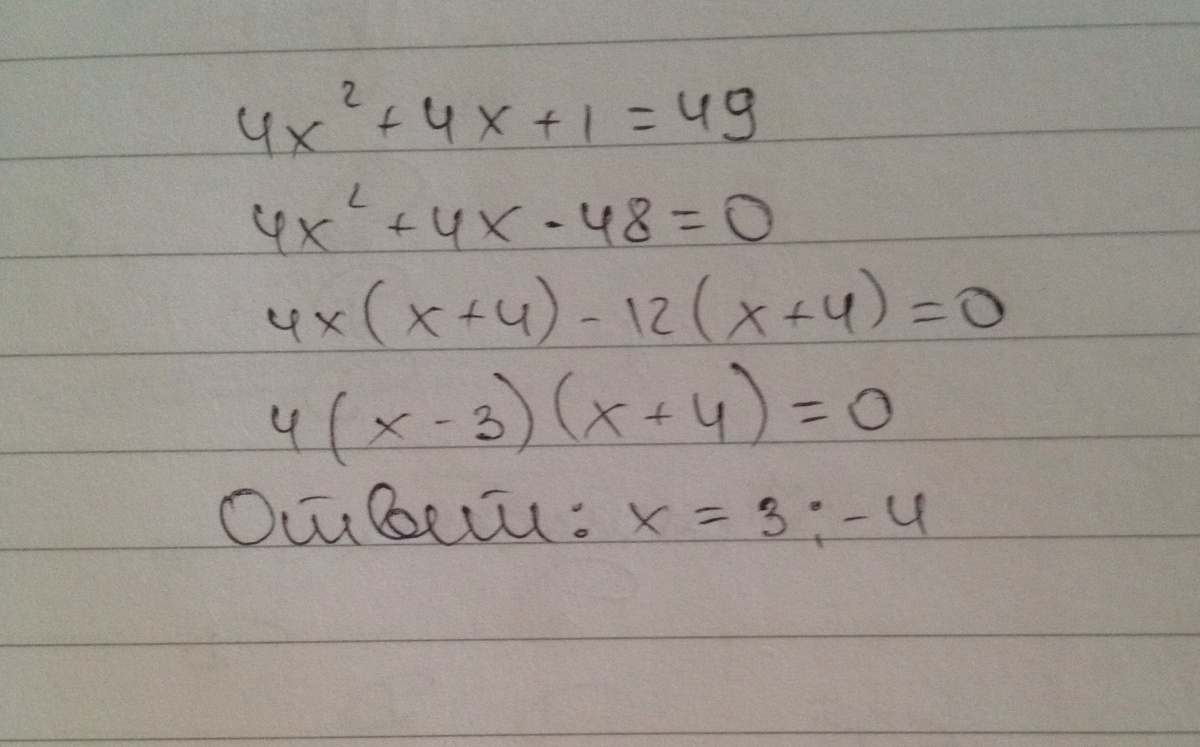 4x² + 4x + 1 = 49
4x² + 4x - 48 = 0
4x(x+4) - 12(x+4) = 0
4(x - 3)(x + 4) = 0
Ответ: x = 3; -4